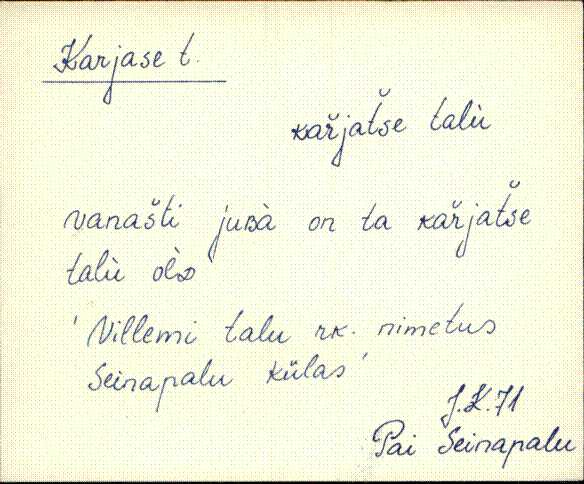 Karjase t.
kařjaťše talù
vanašti juʙà on ta kařjaťše
talù olˋD
'Villemi talu rk. nimetus
Seinapalu külas'
J.K.71
Pai Seinapalu